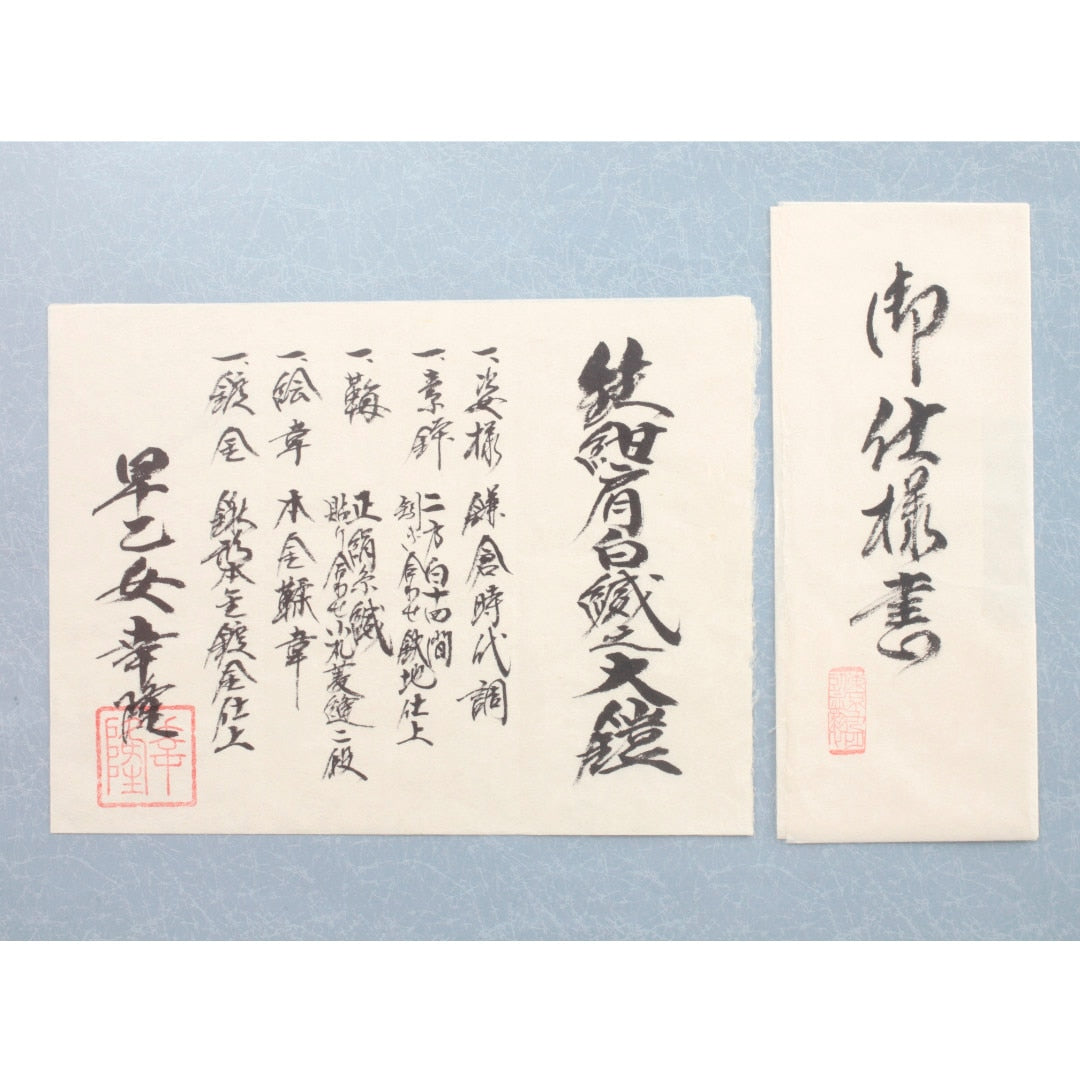 御仕様書
鉄紺肩白縅之大鎧
一、姿様 鎌倉時代調
一、兜鉢 二方白十四間
合わせ鉄地仕上
一、 正絹糸縅
貼り合わせ小札菱縫二段
一、絵韋 本金鞣韋
一、鍍金 鍬形本金鍍金仕上
早乙女幸隆
幸隆